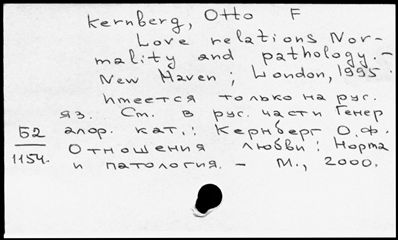 Kernberg, Otto F
Love relations Nor-
mality and pathology.-
New Haven; London, 1995.
Имеется только на рус.
яз. См. в рус. части Генер
алф. кат.: Кернберг О.Ф.
Отношения любви: Норма
и патология. - М., 2000.
Б2
1154.